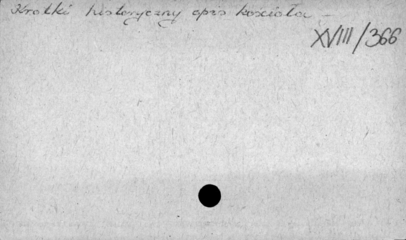 Krotki historyczny opis kosciola -
XVIII/366